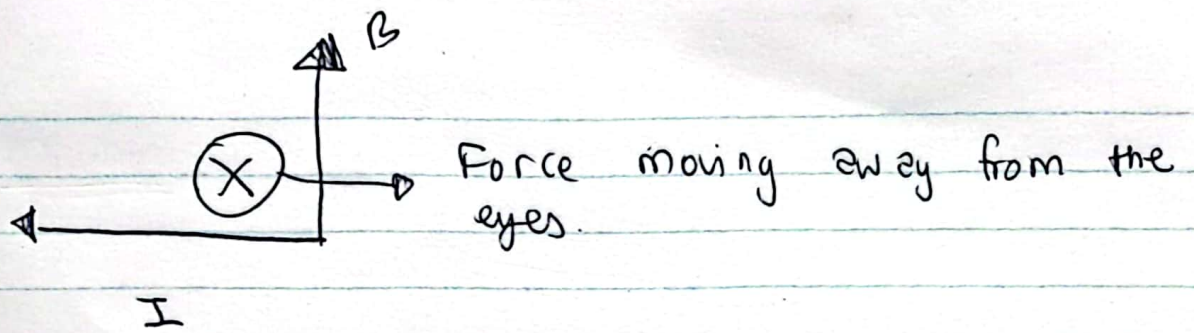 B
X
Force moving away from the
eyes.
I